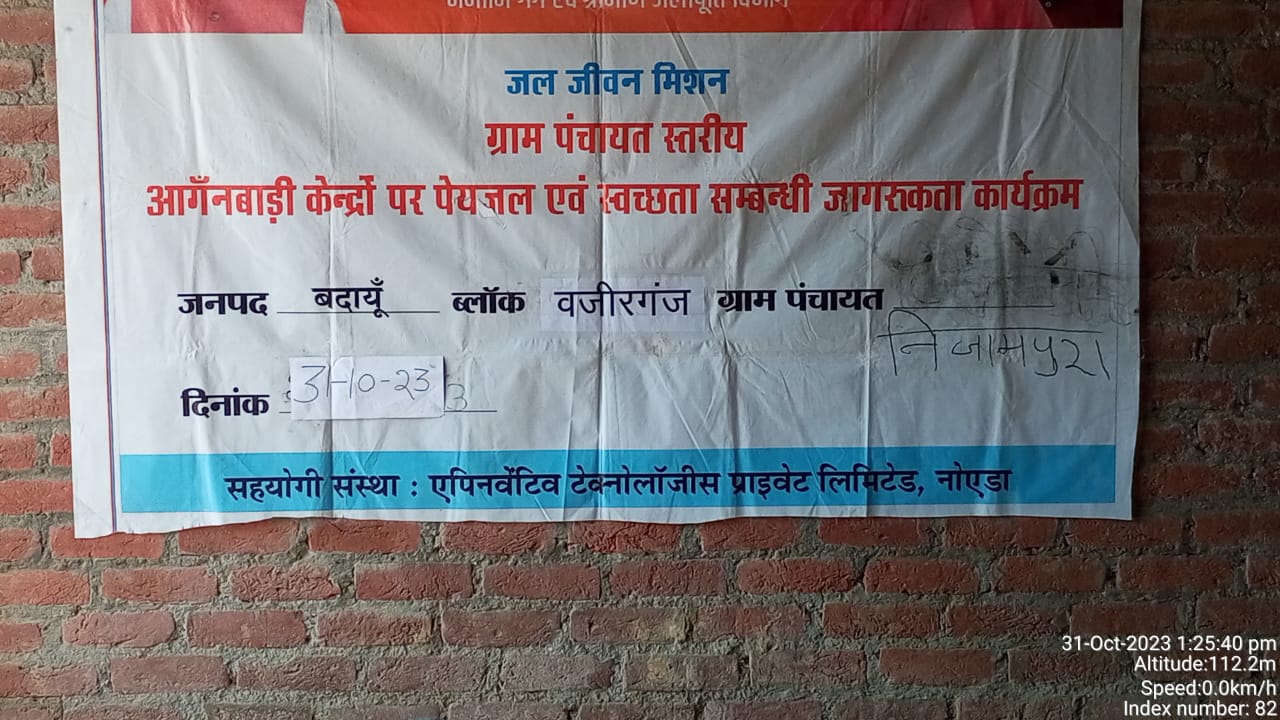 नमामि गंगे एवं ग्रामीण जलापूर्ति विभाग
जल जीवन मिशन
ग्राम पंचायत स्तरीय
आगँनबाड़ी केन्द्रों पर पेयजल एवं स्वच्छता सम्बन्धी जागरूकता कार्यक्रम
जनपद बदायूँ ब्लॉक वजीरगंज ग्राम पंचायत
निजामपुरा
दिनांक 31-10-23 3
सहयोगी संस्था : एपिनर्वेंटिव टेक्नोलॉजीस प्राइवेट लिमिटेड, नोएडा
31-Oct-2023 1:25:40 pm
Altitude:112.2m
Speed:0.0km/h
Index number: 82